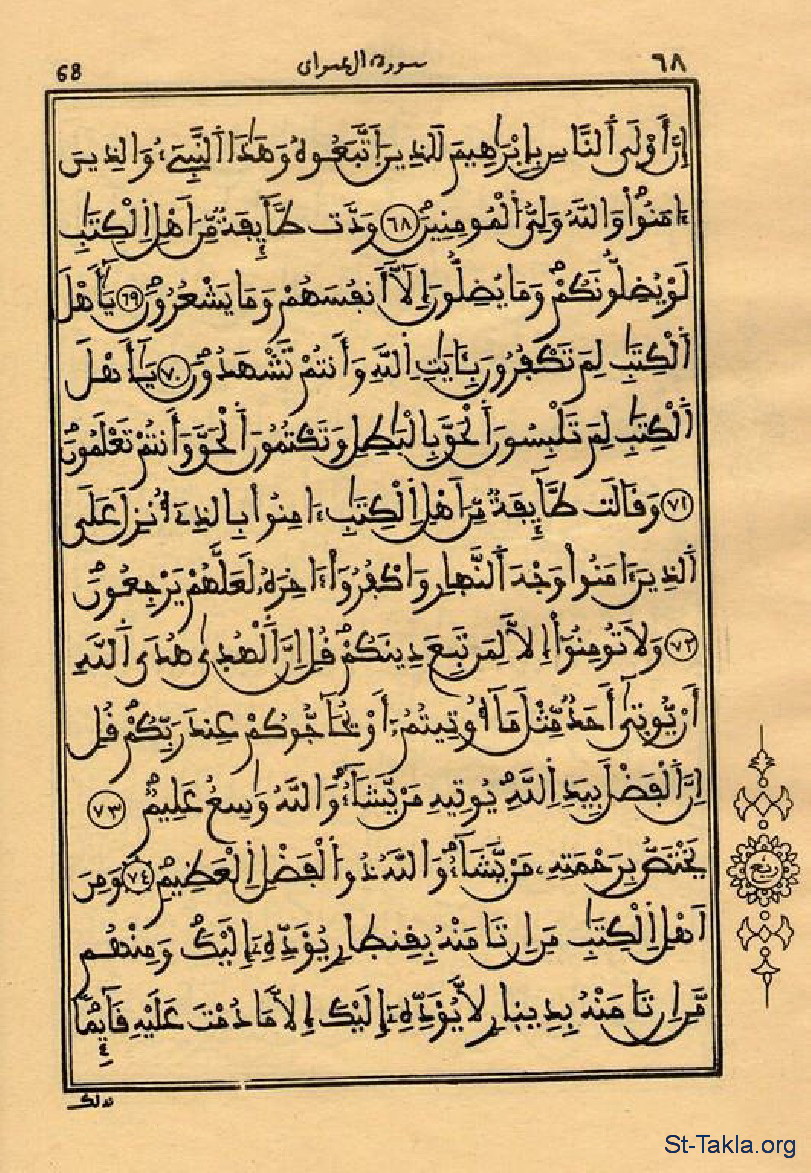 68 سورة ال عمران ٦٨
إِنَّ أَوْلَى ٱلنَّاسِ بِإِبْرَٰهِيمَ لَلذِينَ ٱتَّبَعُوهُ وَهَٰذَا ٱلنَّبِيٓءُ وَالذِينَ
ءَامَنُواْ وَاللَّهُ وَلِيُّ ٱلْمُومِنِينَ ٦٨ وَدَّت طَّآئِفَةٌ مِّنَ اَهْلِ اِلْكِتَٰبِ
لَوْ يُضِلُّونَكُمْ وَمَا يُضِلُّونَ إِلَّآ أَنفُسَهُمْ وَمَا يَشْعُرُونَ ٦٩ يَٰٓأَهْلَ
ٱلْكِتَٰبِ لِمَ تَكْفُرُونَ بِـَٔايَٰتِ اِللَّهِ وَأَنتُمْ تَشْهَدُونَ ٧٠ يَٰٓأَهْلَ
ٱلْكِتَٰبِ لِمَ تَلْبِسُونَ ٱلْحَقَّ بِالْبَٰطِلِ وَتَكْتُمُونَ ٱلْحَقَّ وَأَنتُمْ تَعْلَمُونَ
٧١ وَقَالَت طَّآئِفَةٌ مِّنَ اَهْلِ اِلْكِتَٰبِ ءَامِنُواْ بِالذِےٓ أُنزِلَ عَلَى
ٱلذِينَ ءَامَنُواْ وَجْهَ ٱلنَّهارِ وَاكْفُرُوٓاْ ءَاخِرَهُۥ لَعَلَّهُمْ يَرْجِعُونَ
٧٢ وَلَا تُومِنُوٓاْ إِلَّا لِمَن تَبِعَ دِينَكُمْ قُلِ اِنَّ ٱلْهُدَىٰ هُدَى ٱللَّهِ
أَنْ يُّوتَىٰٓ أَحَدٌ مِّثْلَ مَآ أُوتِيتُمُۥٓ أَوْ يُحَآجُّوكُمْ عِندَ رَبِّكُمْ قُلِ
اِنَّ ٱلْفَضْلَ بِيَدِ اِللَّهِ يُوتِيهِ مَنْ يَّشَآءُ وَاللَّهُ وَٰسِعٌ عَلِيمٌ ٧٣
يَخْتَصُّ بِرَحْمَتِهِۦ مَنْ يَّشَآءُ وَاللَّهُ ذُو اُلْفَضْلِ اِلْعَظِيمِ ٧٤ وَمِنَ
اَهْلِ اِلْكِتَٰبِ مَنِ اِن تَامَنْهُ بِقِنطَارٍ يُؤَدِّهِۦٓ إِلَيْكَ وَمِنْهُم
مَّنِ اِن تَامَنْهُ بِدِينَارٍ لَّا يُؤَدِّهِۦٓ إِلَيْكَ إِلَّا مَا دُمْتَ عَلَيْهِ قَآئِمًا
ربع
ذلك
St-Takla.org